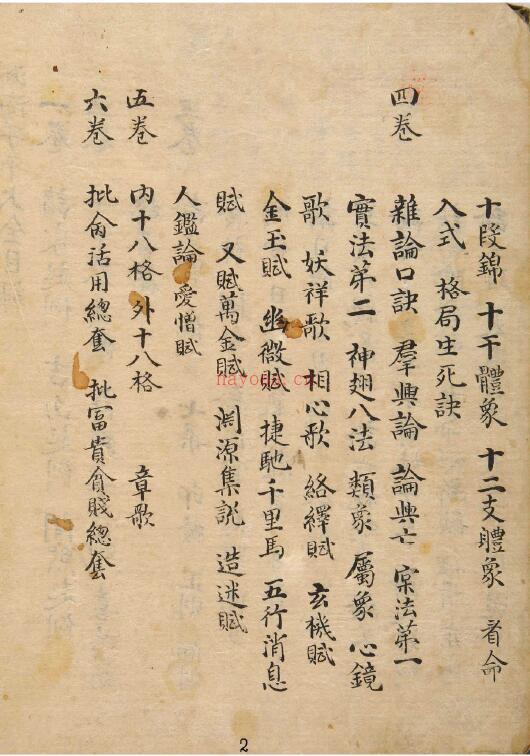 十段錦 十干體象 十二支體象 看命
入式 格局生死訣
四卷 雜論口訣 羣興論 論興亡 寀法第一
寀法第二 神趣八法 類象 屬象 心鏡
歌 妖祥歌 相心歌 絡繹賦 玄機賦
金玉賦 幽微賦 捷馳千里馬 五行消息
賦 又賦萬金賦 淵源集說 造迷賦
人鑑論 愛憎賦
五卷 內十八格 外十八格 章歌
六卷 批命活用總套 批富貴貧賤總套
2